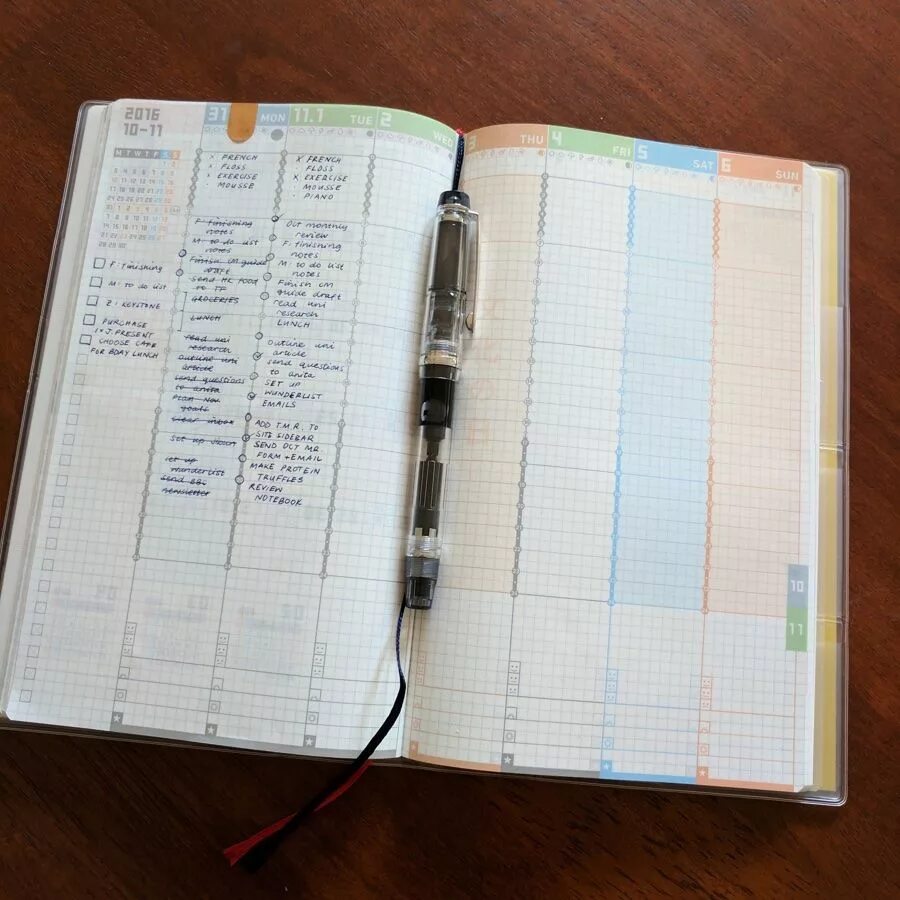 2016
10-11
31
MON
11.1
TUE
2
WED
3
THU
4
FRI
5
SAT
6
SUN
M T W T F S S
F: finishing
M: to do list
Z: KEYSTONE
PURCHASE
1x J. PRESENT
CHOOSE CAFE
FOR BDAY LUNCH
x FRENCH
• FLOSS
x EXERCISE
· MOUSSE
F: finishing
notes
M: to do list
notes
Finish CM guide
draft
Send HK food
to TF
GROCERIES
LUNCH
read uni
research
Outline uni
article
send questions
to anita
Plan Nov
goals
Clear inbox
Set up
set up
wunderlist
Send BBC
newsletter
x FRENCH
FLOSS
x EXERCISE
· MOUSSE
· PIANO
Oct monthly
review
F: finishing
notes
M: to do list
notes
Finish CM
guide draft
read uni
research
LUNCH
Outline uni
article
send questions
to anita
SET UP
WUNDERLIST
EMAILS
ADD T.M.R. TO
SITE SIDEBAR
SEND OCT MR
FORM + EMAIL
MAKE PROTEIN
TRUFFLES
REVIEW
NOTEBOOK
10
11